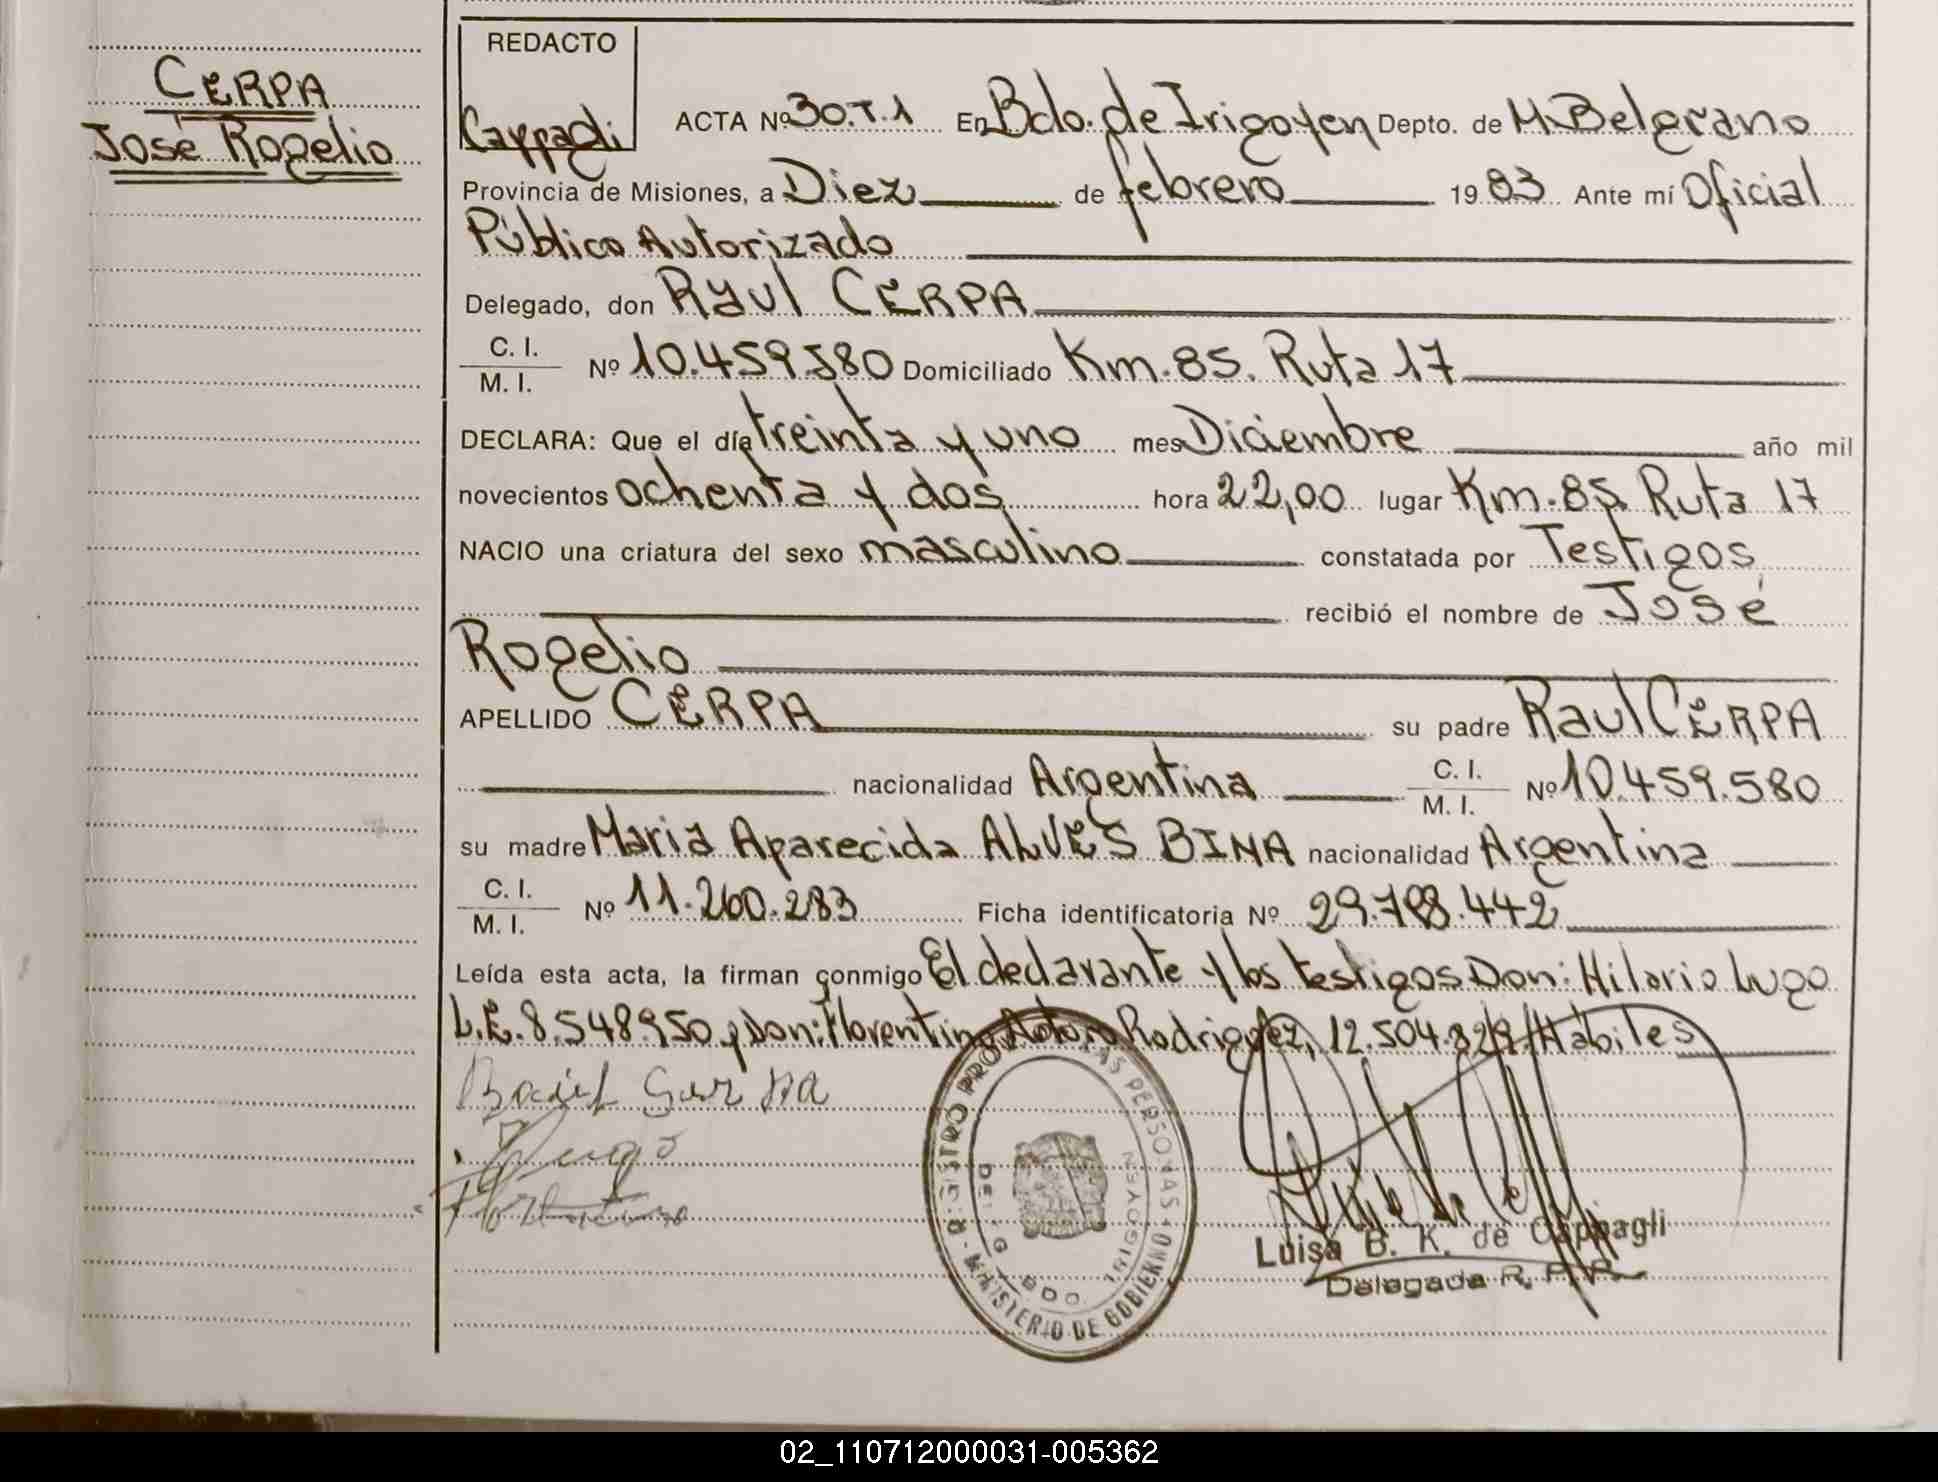 CERPA
José Rogelio
REDACTO
Cappagli
ACTA Nº 30.T.1 En Bdo. de Irigoyen Depto. de M. Belgrano
Provincia de Misiones, a Diez de febrero 1983 Ante mí Oficial
Público Autorizado
Delegado, don Raul CERPA
C. I.
M. I.
Nº 10.459.580 Domiciliado Km. 85. Ruta 17
DECLARA: Que el día treinta y uno mes Diciembre año mil
novecientos ochenta y dos hora 22,00 lugar Km. 85. Ruta 17
NACIO una criatura del sexo masculino constatada por Testigos
recibió el nombre de José
Rogelio
APELLIDO CERPA su padre Raul CERPA
nacionalidad Argentina C. I. M. I. Nº 10.459.580
su madre Maria Aparecida ALVES BINA nacionalidad Argentina
C. I.
M. I.
Nº 11.260.283 Ficha identificatoria Nº 29.798.442
Leída esta acta, la firman conmigo El declarante y los testigos Don: Hilario Lugo
L.E. 8.548.950 y Don: Florentino Rodriguez, 12.504.829. Hábiles
Lugo
REGISTRO PRO LAS PERSONAS
MINISTERIO DE GOBIERNO
BDO. IRIGOYEN
Luisa B. K. de Cappagli
Delegada R. P. P.
02_110712000031-005362